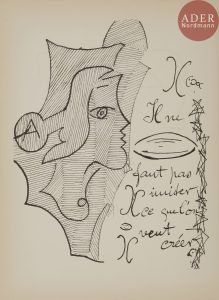 ADER
Nordmann
Il ne
faut pas
imiter
ce que l'on
veut créer